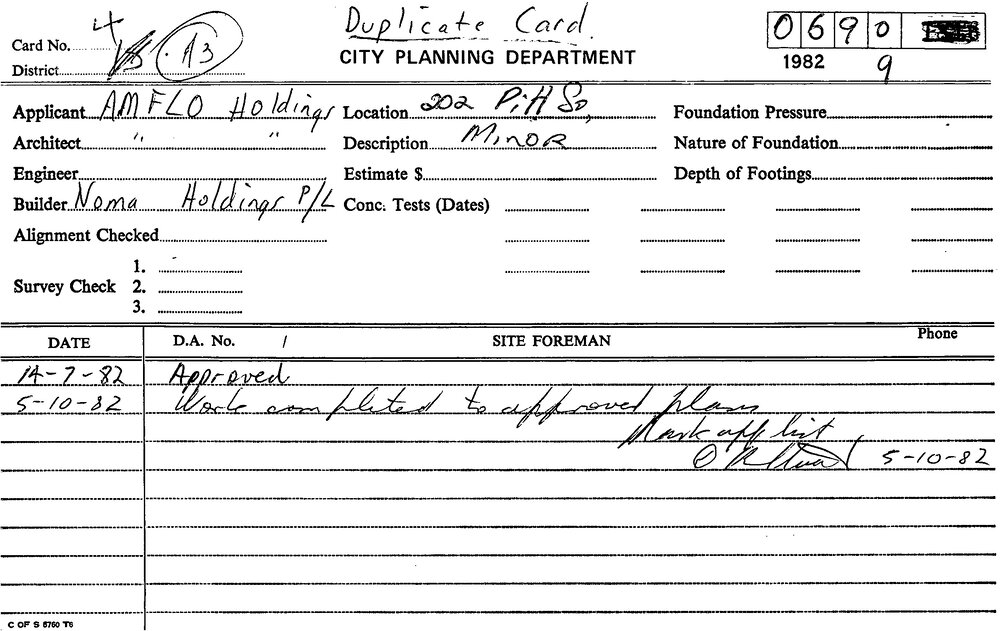 Duplicate Card.
4
Card No.
District
A3
CITY PLANNING DEPARTMENT
0690
1982 9
Applicant AMFLO Holdings Location 202 Pitt St, Foundation Pressure
Architect " " Description Minor Nature of Foundation
Engineer Estimate $ Depth of Footings
Builder Noma Holdings P/L Conc. Tests (Dates)
Alignment Checked
1.
Survey Check 2.
3.
DATE D.A. No. / SITE FOREMAN Phone
14-7-82 Approved
5-10-82 Work completed to approved plans
Mark off list
5-10-82
C OF S 5760 T6